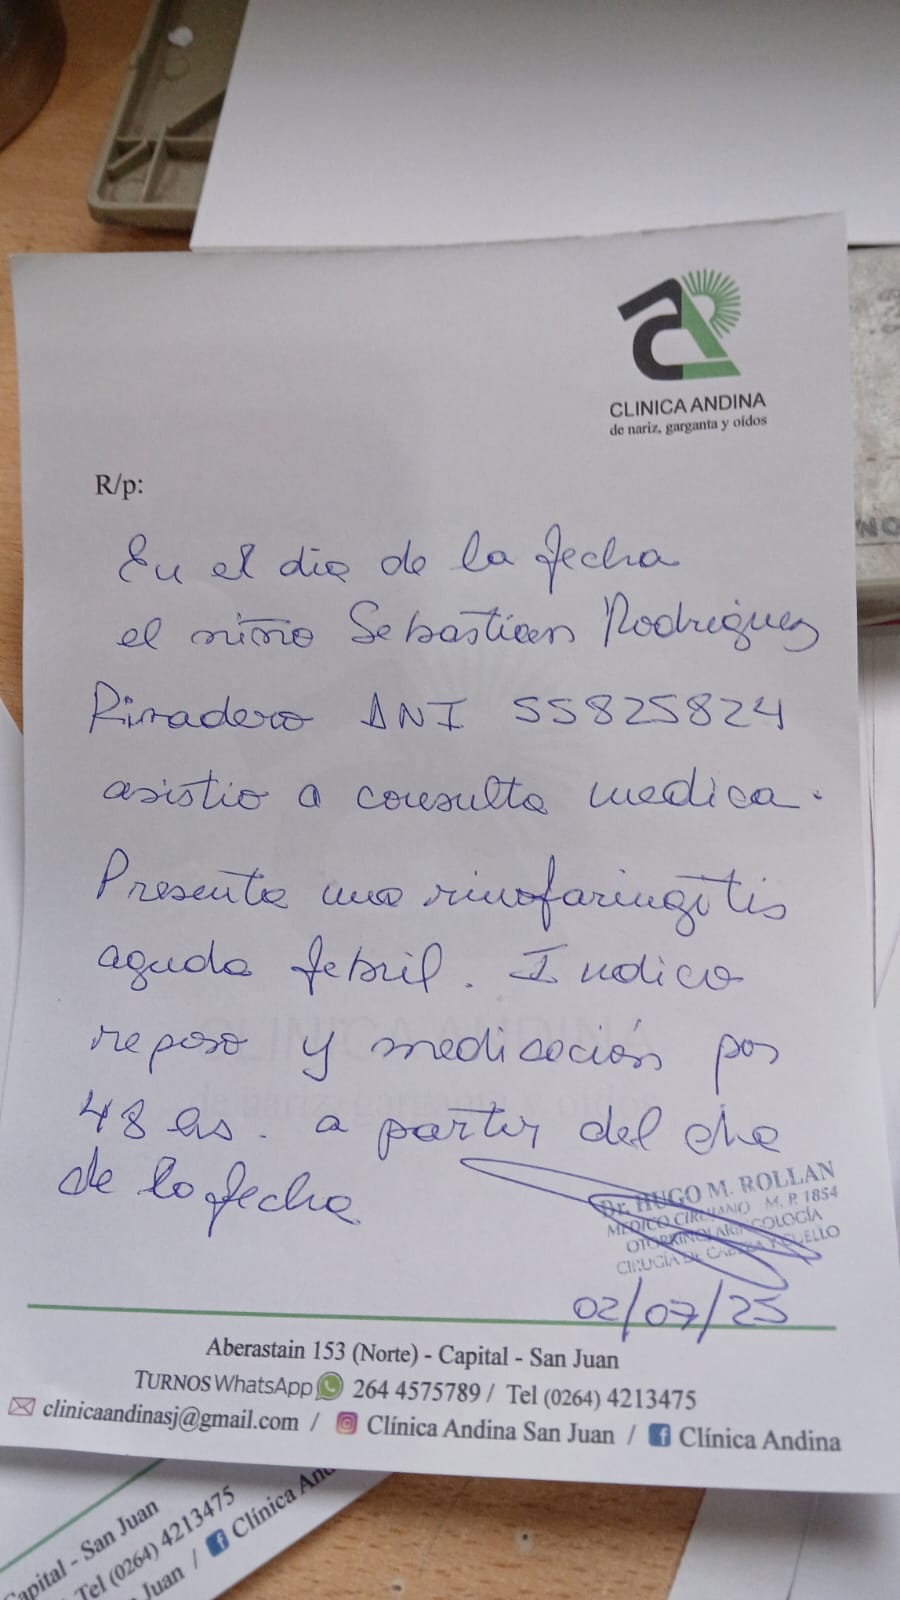 CLINICA ANDINA
de nariz, garganta y oídos
R/p:
En el dia de la fecha
el niño Sebastian Rodriguez
Rivadero DNI 55825824
asistio a consulta medica.
Presenta una rinofaringitis
aguda febril. Indico
reposo y medicación por
48 hs. a partir del dia
de la fecha
Dr. HUGO M. ROLLAN
MEDICO CIRUJANO M. P. 1854
OTORRINOLARINGOLOGÍA
CIRUGÍA DE CABEZA Y CUELLO
02/07/25
Aberastain 153 (Norte) - Capital - San Juan
TURNOS WhatsApp 264 4575789 / Tel (0264) 4213475
clinicaandinasj@gmail.com / Clínica Andina San Juan / Clínica Andina
Capital - San Juan
Tel (0264) 4213475
Juan / Clínica